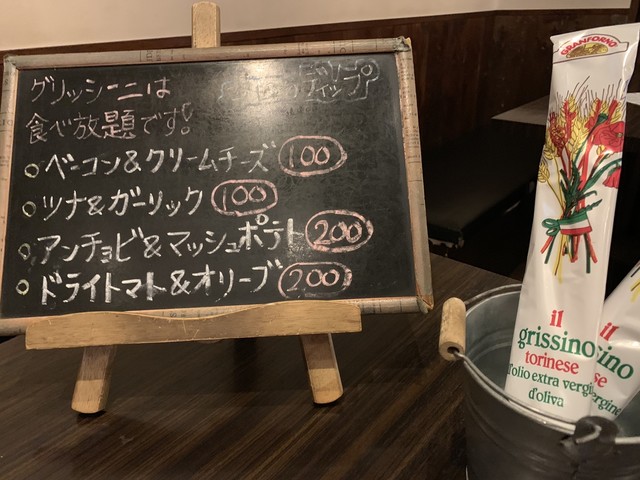 グリッシーニは
食べ放題です!
ディップ
○ベーコン&クリームチーズ 100
○ツナ&ガーリック 100
○アンチョビ&マッシュポテト 200
○ドライトマト&オリーブ 200
GRANFORNO
il
grissino
torinese
d'olio extra vergi
d'oliva
ino
se
ergine